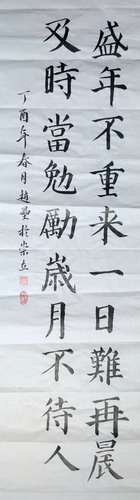 盛年不重来一日難再晨
及時當勉勵歳月不待人
丁酉年春月趙於崇